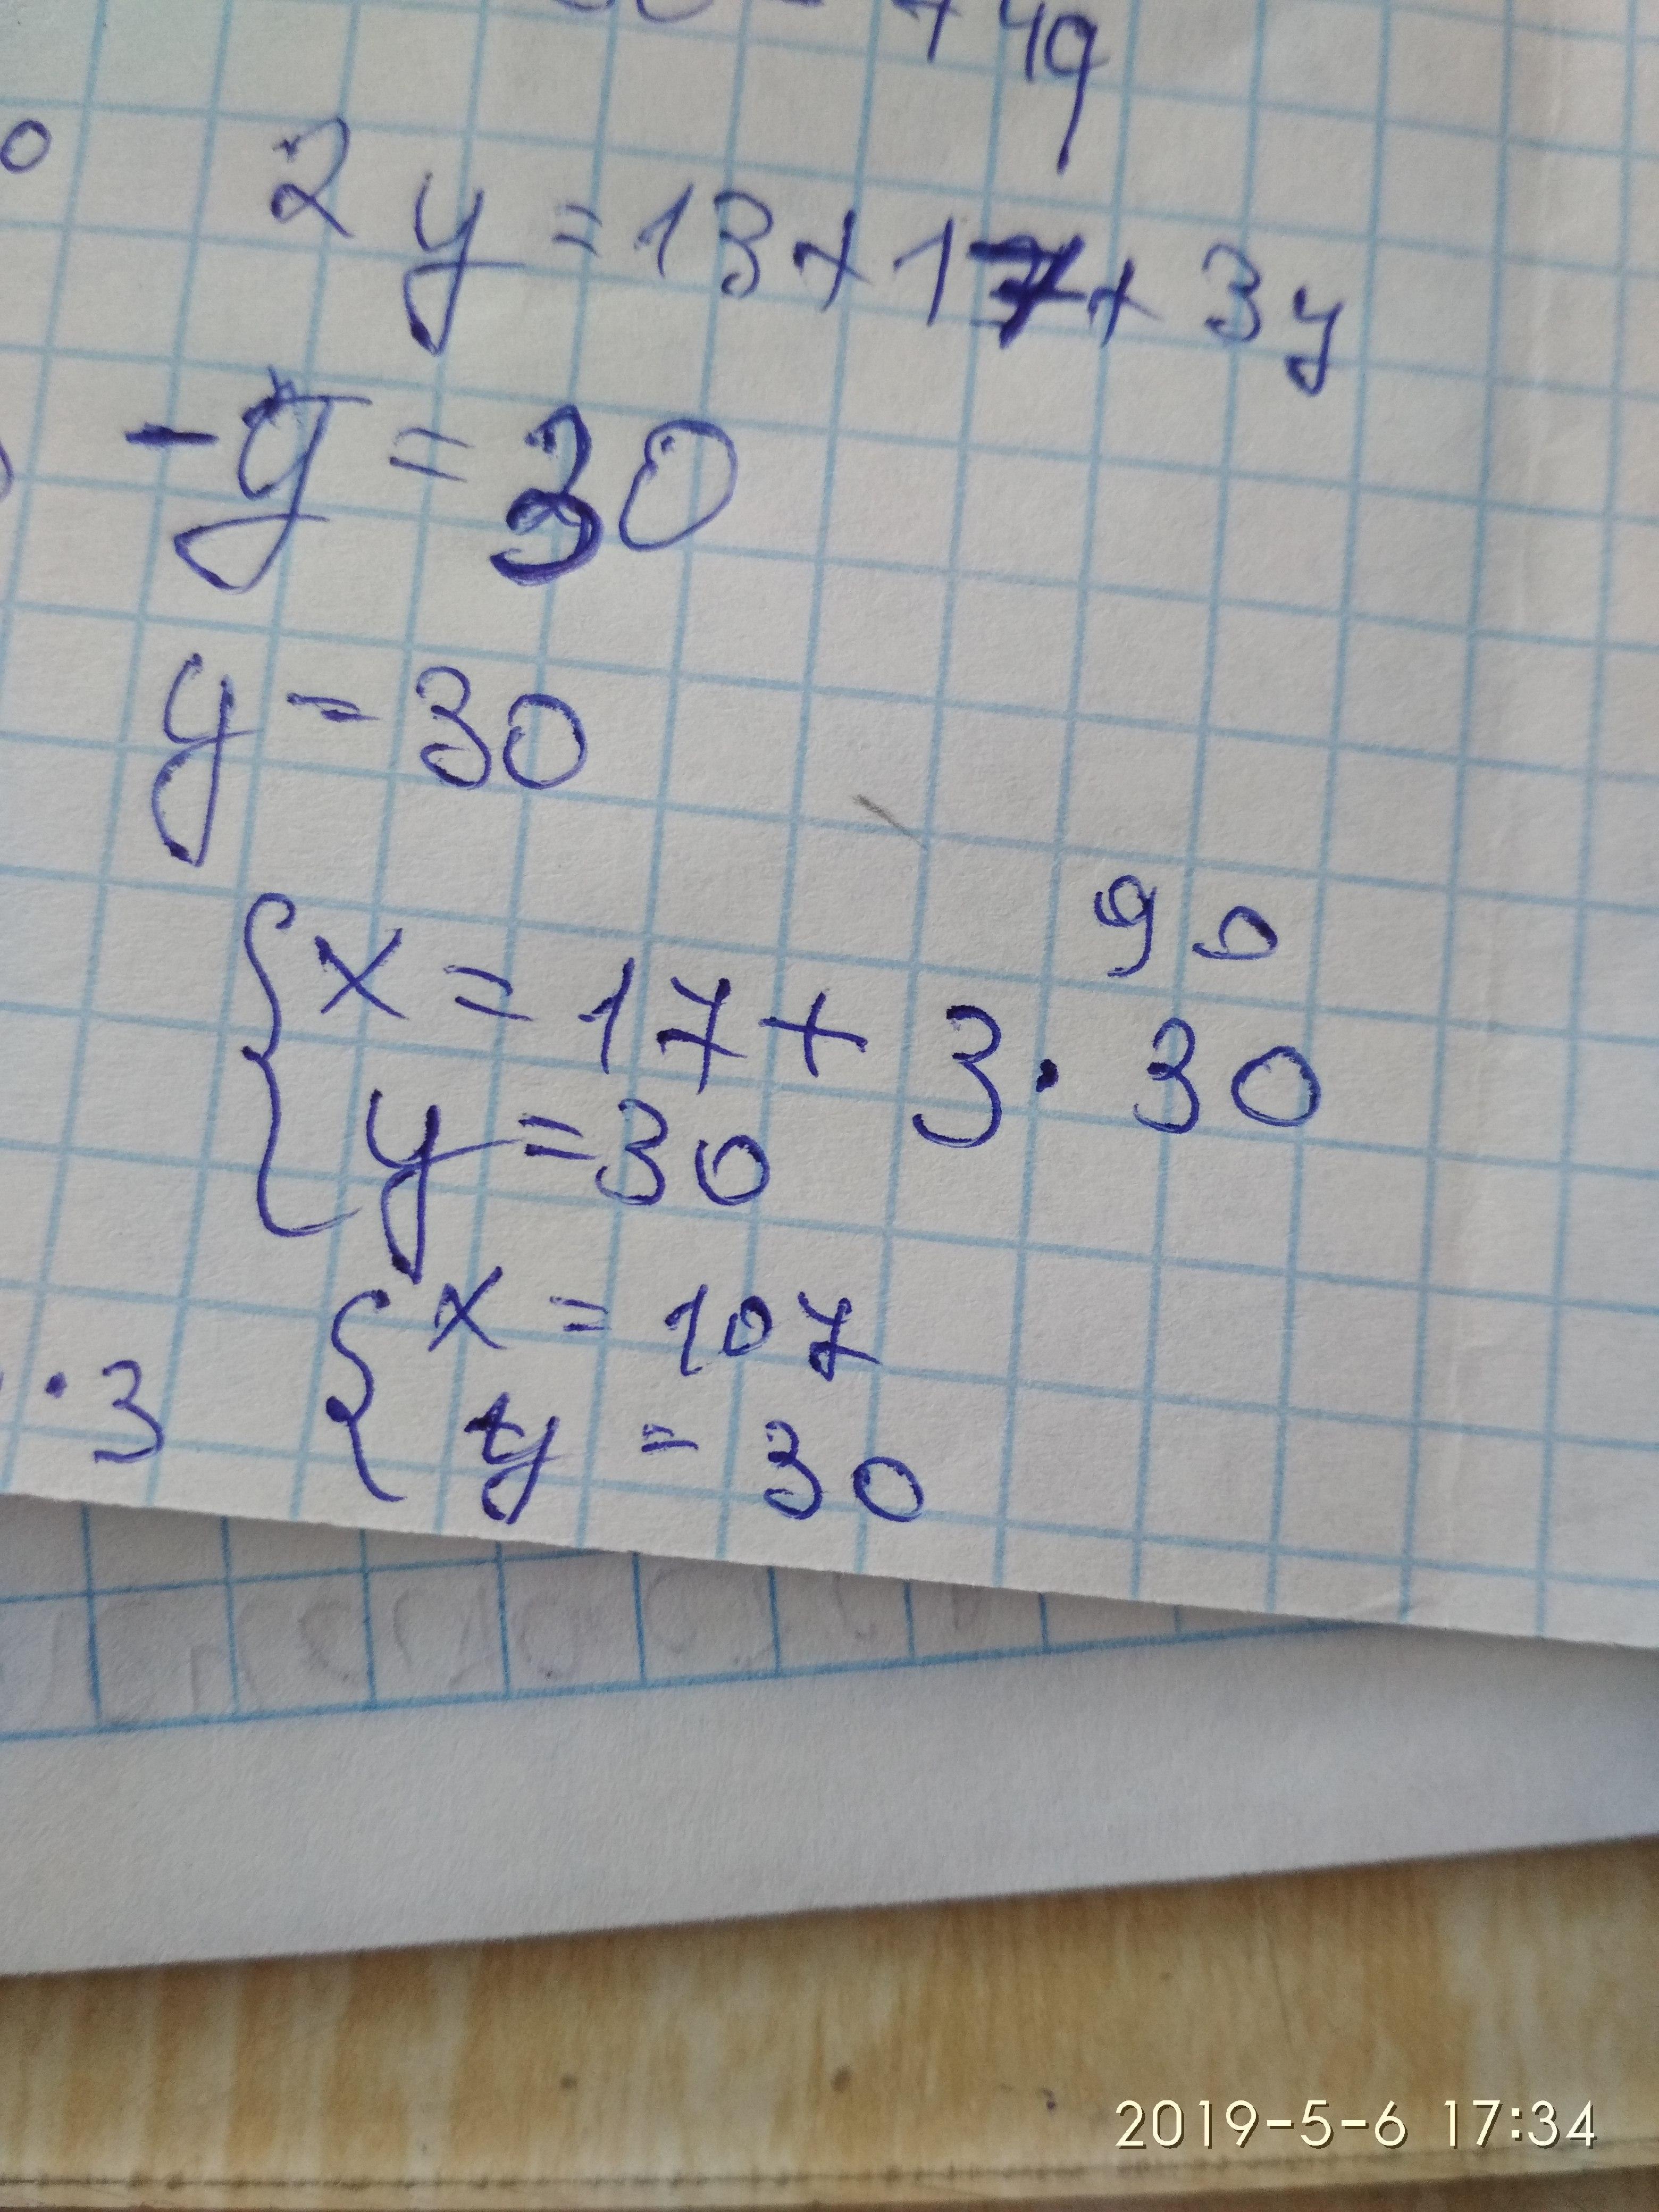 +49
0 2y=13+17+3y
-y=30
y=30
90
x=17+3·30
y=30
x=107
·3 y=30
2019-5-6 17:34